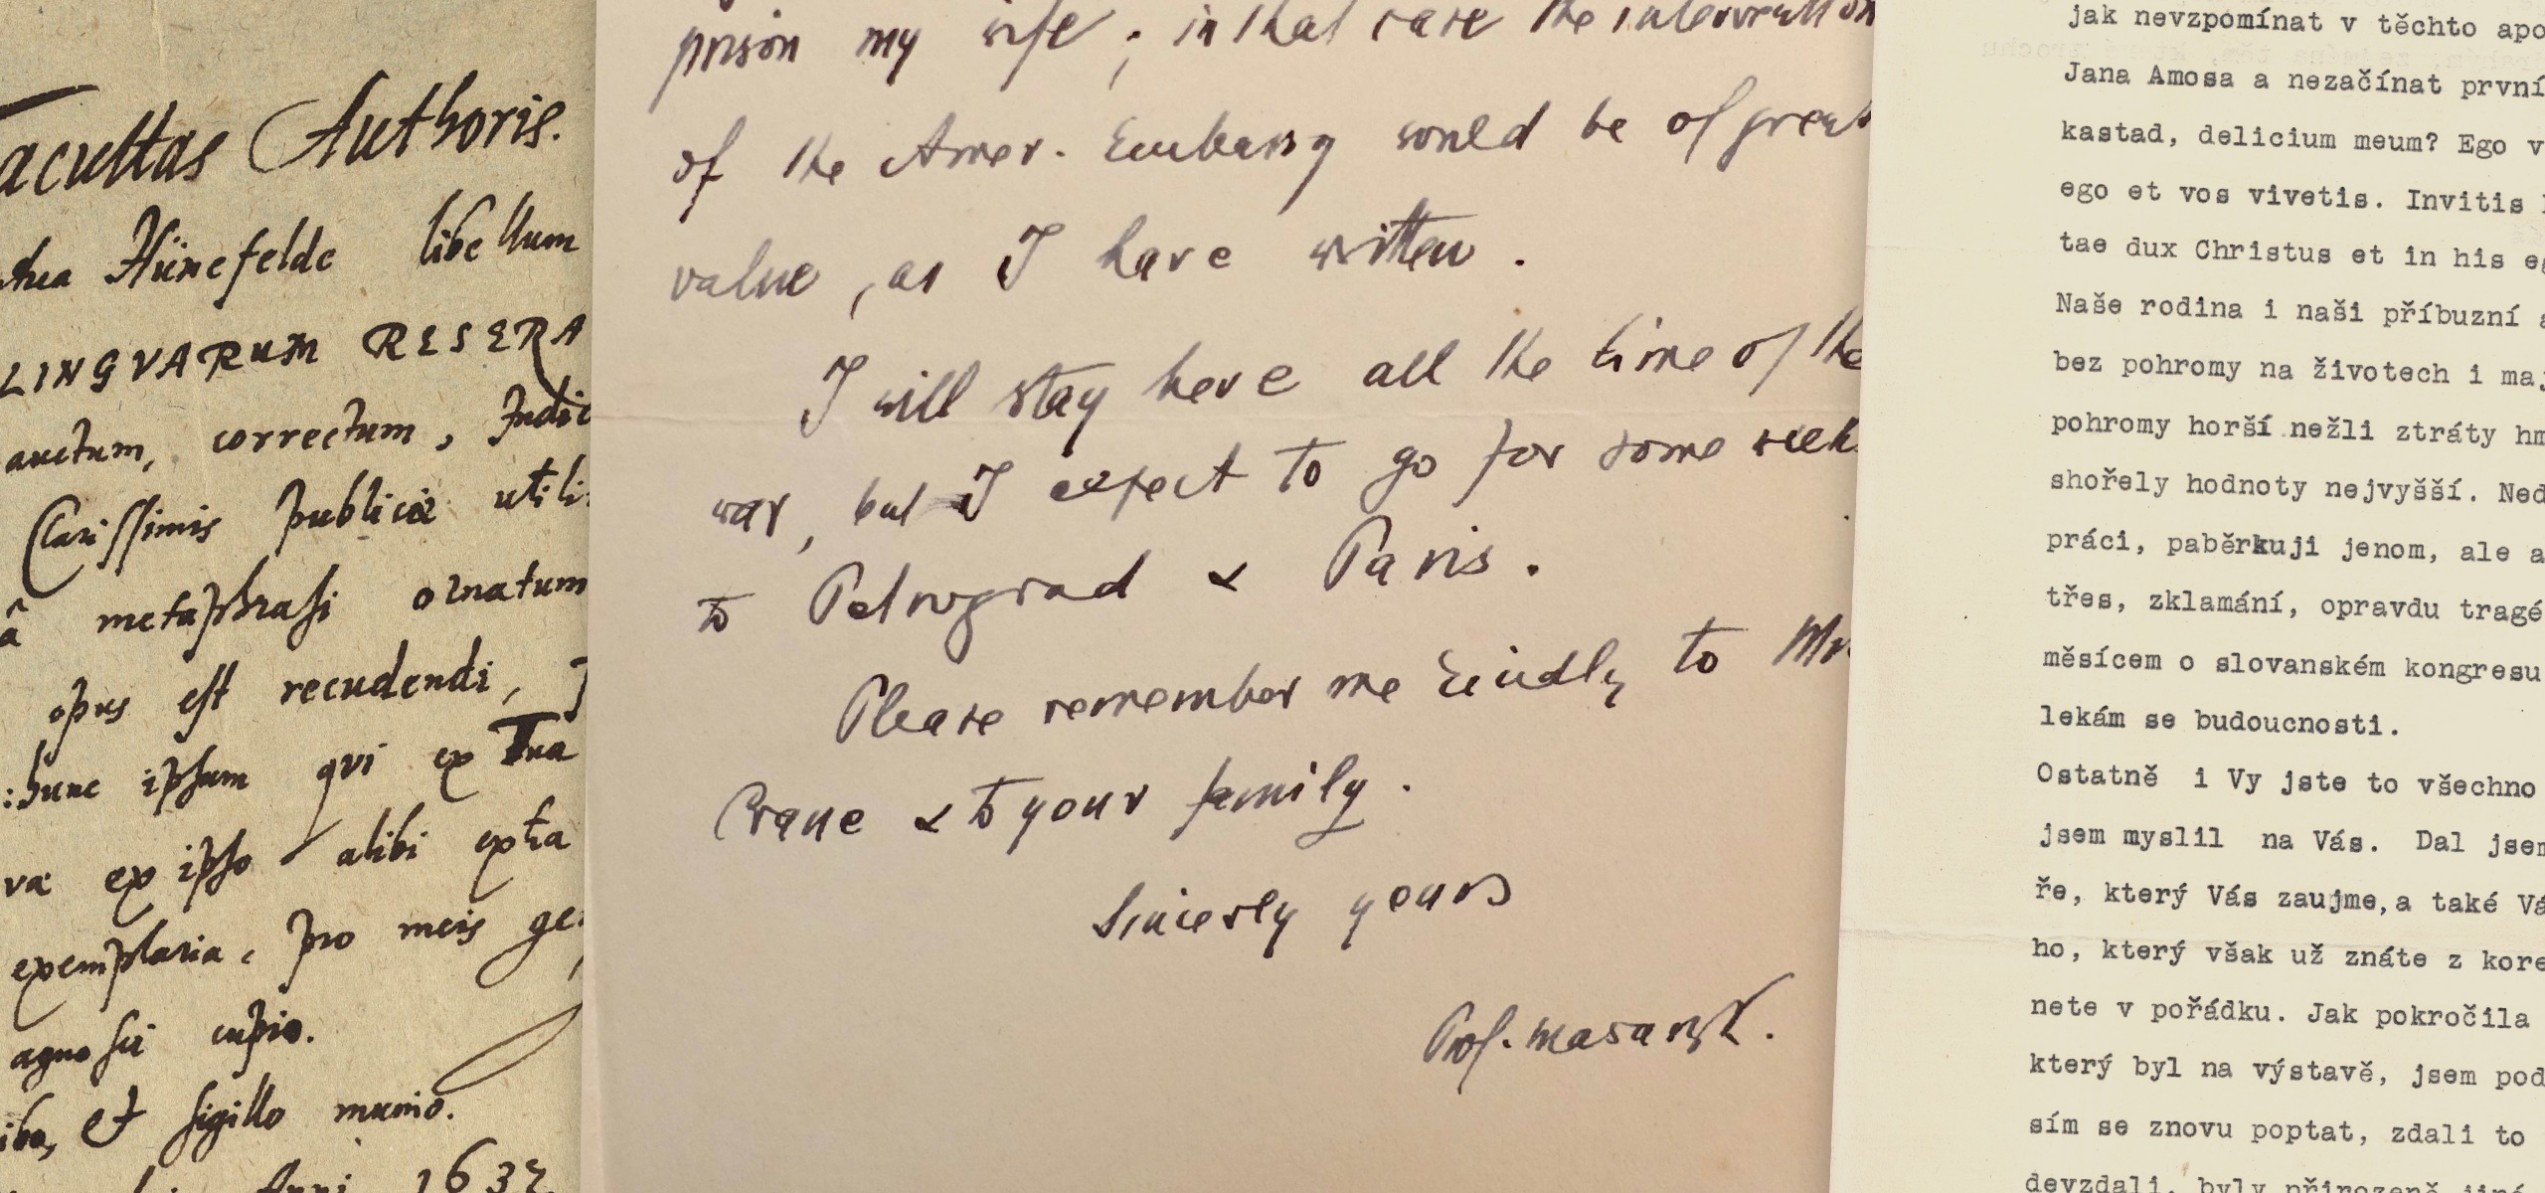 acultas Authoris.
Hünefelde libellum
LINGVARUM RESERA
auctum, correctum, Indic
Clarissimis publicæ utili
â metaphrasi ornatum
opus est recudendi,
hunc ipsum qui ex Tua
va ex ipso alibi exta
exemplaria, pro meis ge
agnosci cupio.
iba, et sigillo munio.
Anni 1632
prison my wife; in that case the intervention
of the Amer. Embassy would be of great
value, as I have written.
I will stay here all the time of the
war, but I expect to go for some week
to Petrograd & Paris.
Please remember me kindly to Mr
Crane & to your family.
Sincerely yours
Prof. Masaryk.
jak nevzpomínat v těchto apo
Jana Amosa a nezačínat první
kastad, delicium meum? Ego v
ego et vos vivetis. Invitis
tae dux Christus et in his eg
Naše rodina i naši příbuzní a
bez pohromy na životech i maj
pohromy horší nežli ztráty hm
shořely hodnoty nejvyšší. Ned
práci, paběrkuji jenom, ale a
třes, zklamání, opravdu tragé
měsícem o slovanském kongresu
lekám se budoucnosti.
Ostatně i Vy jste to všechno
jsem myslil na Vás. Dal jsem
ře, který Vás zaujme,a také Vá
ho, který však už znáte z kore
nete v pořádku. Jak pokročila
který byl na výstavě, jsem pod
sím se znovu poptat, zdali to
devzdali, byly přirozeně jiné